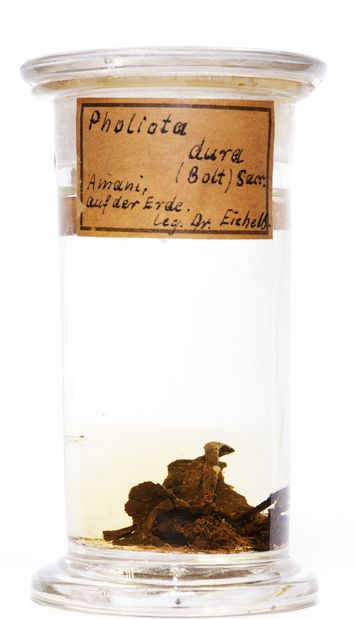 Pholiota
dura
(Bolt) Sacc.
Amani,
auf der Erde.
leg. Dr. Eichelb.